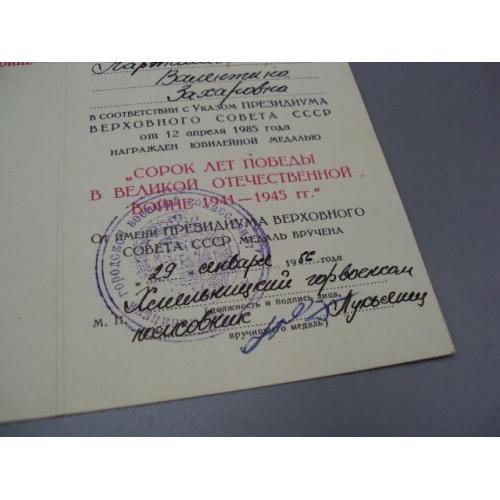 Валентина
Захаровна
В СООТВЕТСТВИИ С УКАЗОМ ПРЕЗИДИУМА
ВЕРХОВНОГО СОВЕТА СССР
от 12 апреля 1985 года
НАГРАЖДЕН ЮБИЛЕЙНОЙ МЕДАЛЬЮ
„СОРОК ЛЕТ ПОБЕДЫ
В ВЕЛИКОЙ ОТЕЧЕСТВЕННОЙ
ВОЙНЕ 1941—1945 гг."
ОТ ИМЕНИ ПРЕЗИДИУМА ВЕРХОВНОГО
СОВЕТА СССР МЕДАЛЬ ВРУЧЕНА
„29 " января 1986 года
Хмельницкий горвоенком
(должность и подпись лица,
М. П. полковник Лукьянец
вручившего медаль)